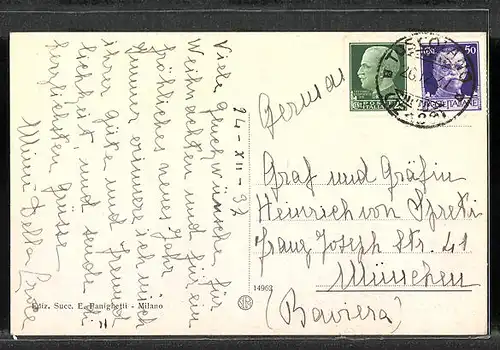 24-XII-37
Viele Glückwünsche für
Weihnachten und für ein
fröhliches neues Jahr
immer erinnere ich mich
ihrer güte und freund
lichkeit und sende die
herzlichsten Grüsse
Minni Della Croce
Germania
Graf und Gräfin
Heinrich von Spreti
Franz Joseph Str. 41
München
(Baviera)
Ediz. Succ. E. Panighetti - Milano
14962
50
ITALIANE